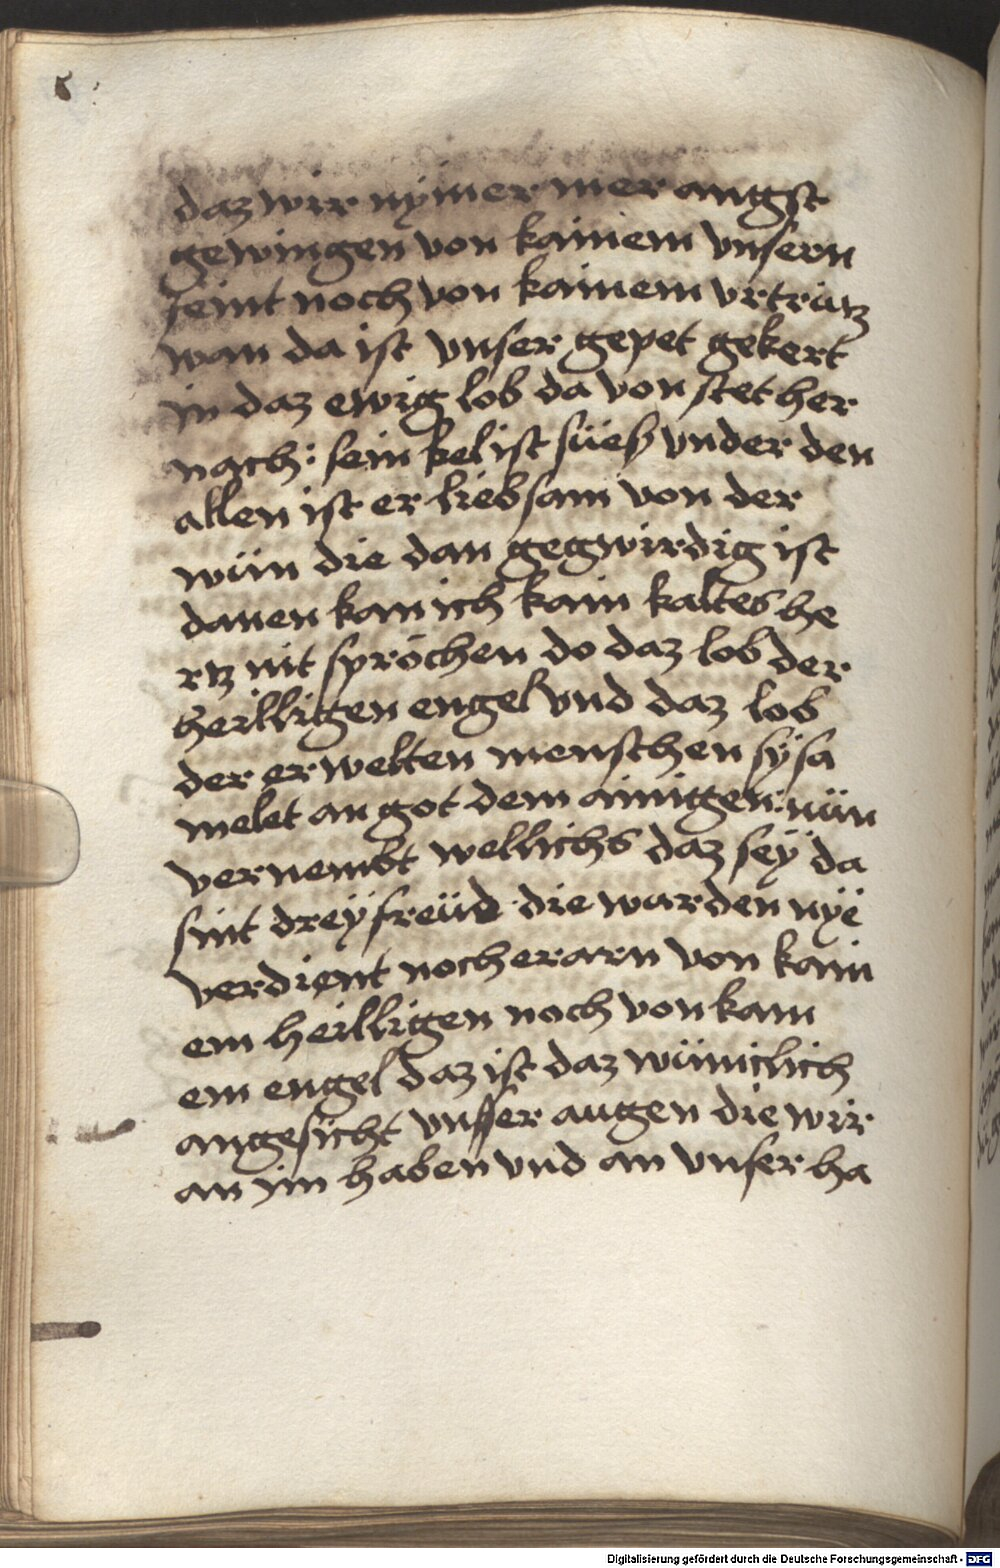 daz wir nÿmer mer angst
gewingen von kainem vnsern
feint noch von kainem vrtrütz
wan da ist vnser gepet gekert
in daz ewig lob da von stet her
nach: sein kel ist süeß vnder den
allen ist er liebsam von der
wün die dan gegwirdig ist
danen kan ich kain kaltes he
rtz nit spröchen do daz lob der
heilligen engel vnd daz lob
der erwelten menschen sÿ sa
melet an got dem ainigen: nün
vernembt wellichs daz seÿ da
sint dreÿ freüd die wurden nÿe
verdient noch erarn von kain
em heilligen noch von kam
em engel daz ist daz wüniclich
angesicht vnsser augen die wir
an im haben vnd an vnser ha
Digitalisierung gefördert durch die Deutsche Forschungsgemeinschaft - DFG